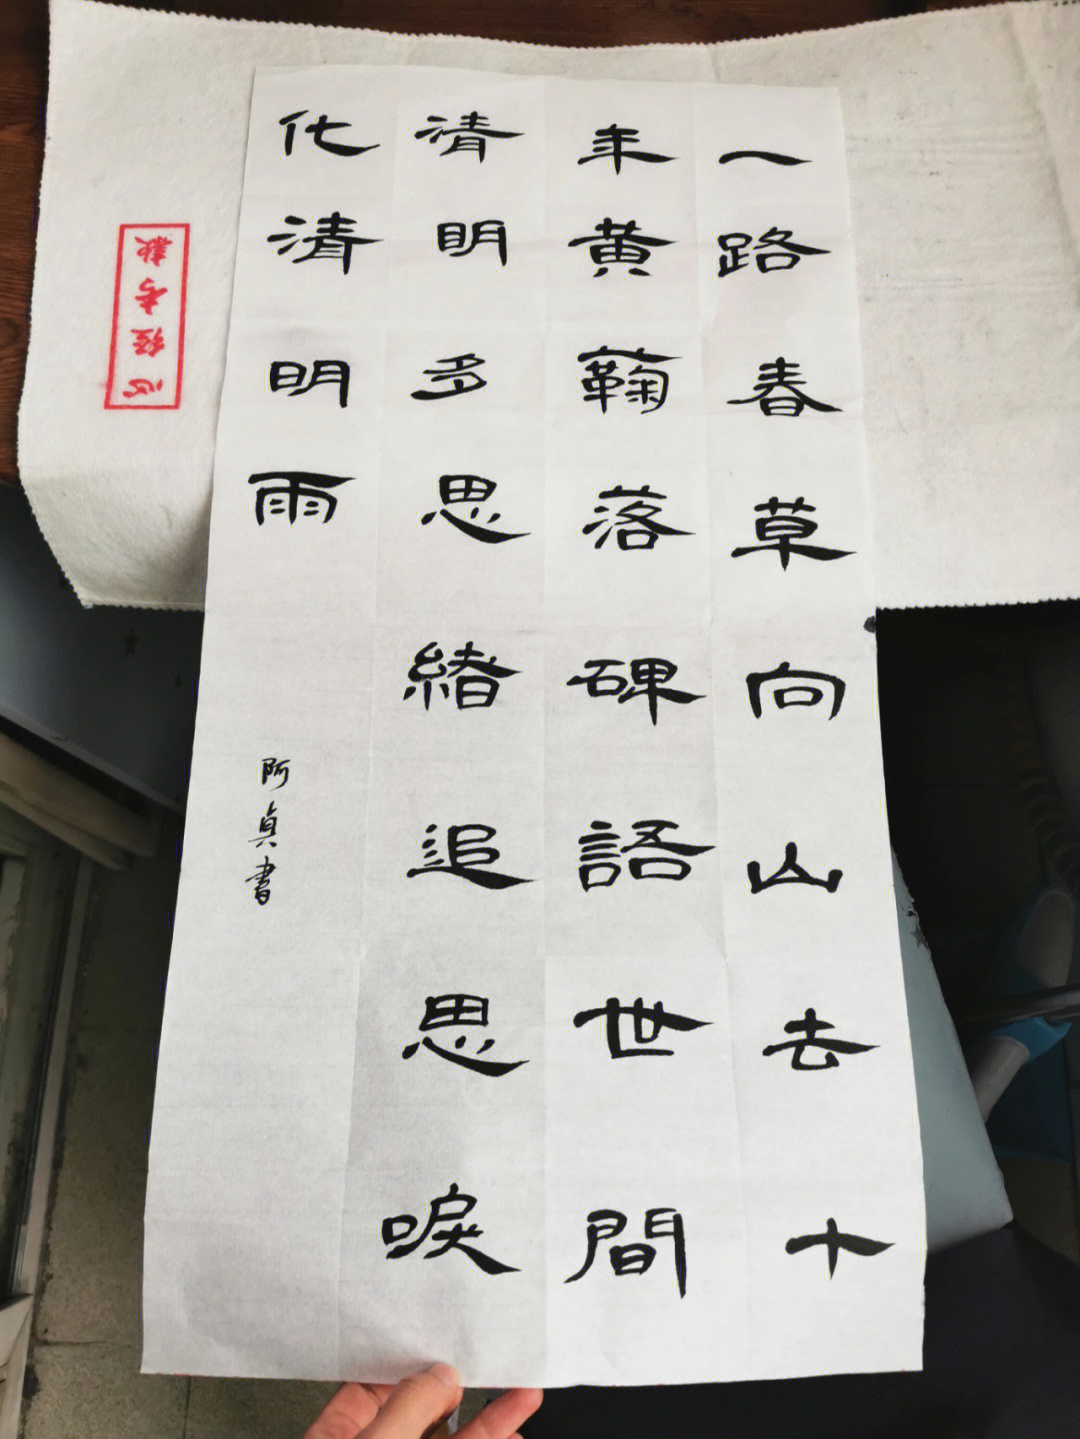 一路春草向山去十
年黄蘜落碑語世間
清明多思緒追思唳
化清明雨
阿貞書
心經考款